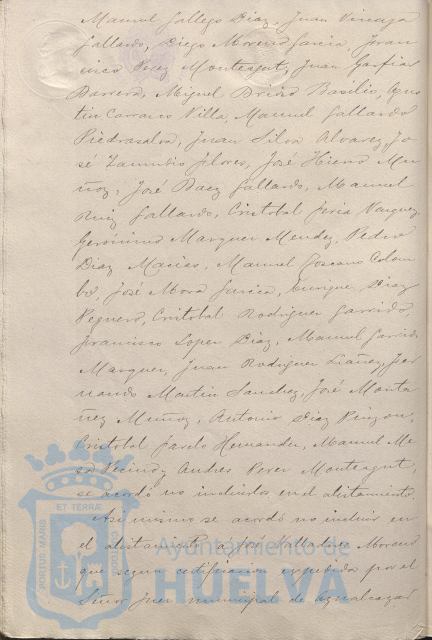 Manuel Gallego Diaz, Juan Vizcaya
Gallardo, Diego Moreno Garcia, Fran
cisco Baez Monteagut, Juan Garfias
Barrera, Miguel Basilio, Agus
tin Carrasco Villa, Manuel Gallardo
Piedrasalva, Juan Silva Alvarez, Jo
sé Zamudio Flores, José Hierro Mu
ñoz, José Baez Gallardo, Manuel
Ruiz Gallardo, Cristobal Feria Vazquez,
Gerónimo Marquez Mendez, Pedro
Diaz Macias, Manuel Toscano Colom
bo, José Mora Garcia, Enrique Diaz
Reguero, Cristobal Rodriguez Garrido,
Francisco Lopez Diaz, Manuel Garrido
Marquez, Juan Rodriguez Liañez, Fer
nando Martin Sanchez, José Monta
ñez Muñoz, Antonio Diaz Pinzon,
Cristobal Hernandez, Manuel Me
sa Vecino y Andrés Perez Monteagut,
se acordó no incluirlos en el alistamiento.
Asi mismo se acordó no incluir en
el alistamiento a José Villalba Moreno
que segun certificacion expedida por el
Señor Juez municipal de Aznalcazar
PORTUS MARIS ET TERRÆ CUSTODIA
Ayuntamiento de
HUELVA